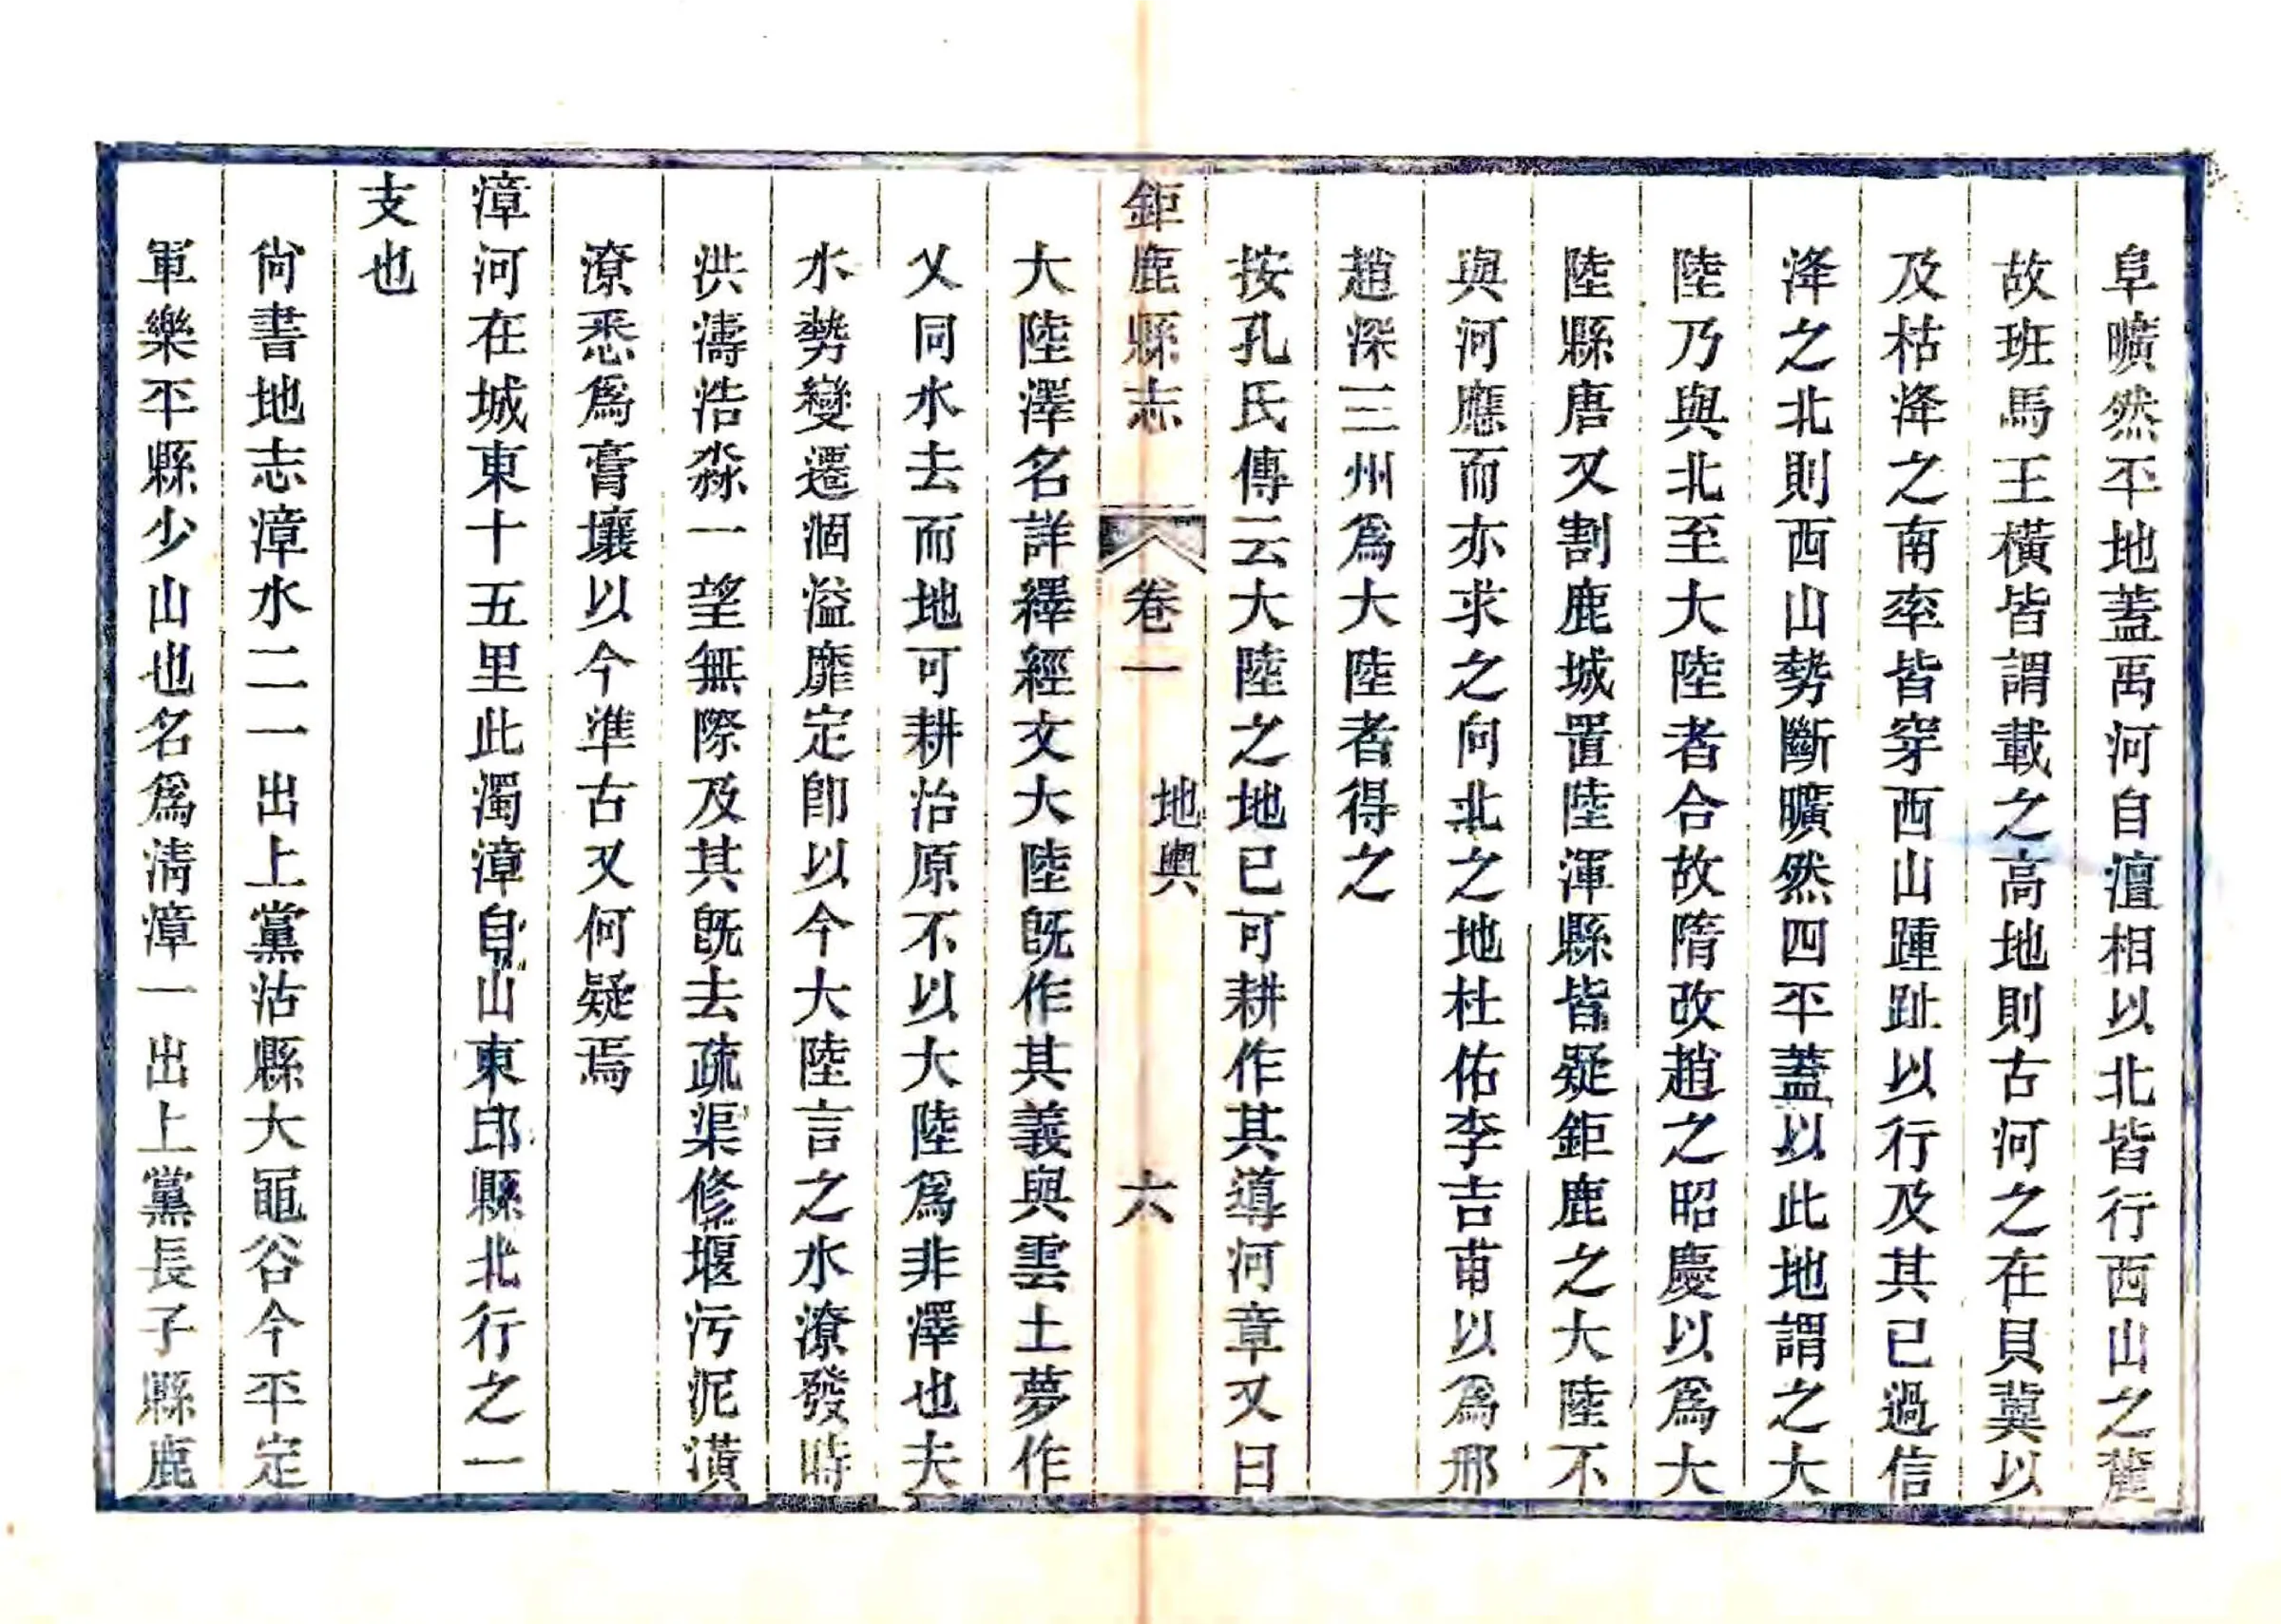 阜曠然平地蓋禹河自澶相以北皆行西山之麓
故班馬王橫皆謂載之高地則古河之在貝冀以
及枯洚之南率皆穿西山踵趾以行及其已過信
洚之北則西山勢斷曠然四平蓋以此地謂之大
陸乃與北至大陸者合故隋改趙之昭慶以爲大
陸縣唐又割鹿城置陸渾縣皆疑鉅鹿之大陸不
與河應而亦求之向北之地杜佑李吉甫以爲邢
趙深三州爲大陸者得之
按孔氏傳云大陸之地已可耕作其導河章又曰
鉅鹿縣志 卷一 地輿 六
大陸澤名詳繹經文大陸旣作其義與雲土夢作
乂同水去而地可耕治原不以大陸爲非澤也夫
水勢變遷涸溢靡定卽以今大陸言之水潦發時
洪濤浩淼一望無際及其旣去疏渠修堰污泥潢
潦悉爲膏壤以今準古又何疑焉
漳河在城東十五里此濁漳自山東邱縣北行之一
支也
尙書地志漳水二一出上黨沾縣大黽谷今平定
軍樂平縣少山也名爲淸漳一出上黨長子縣鹿